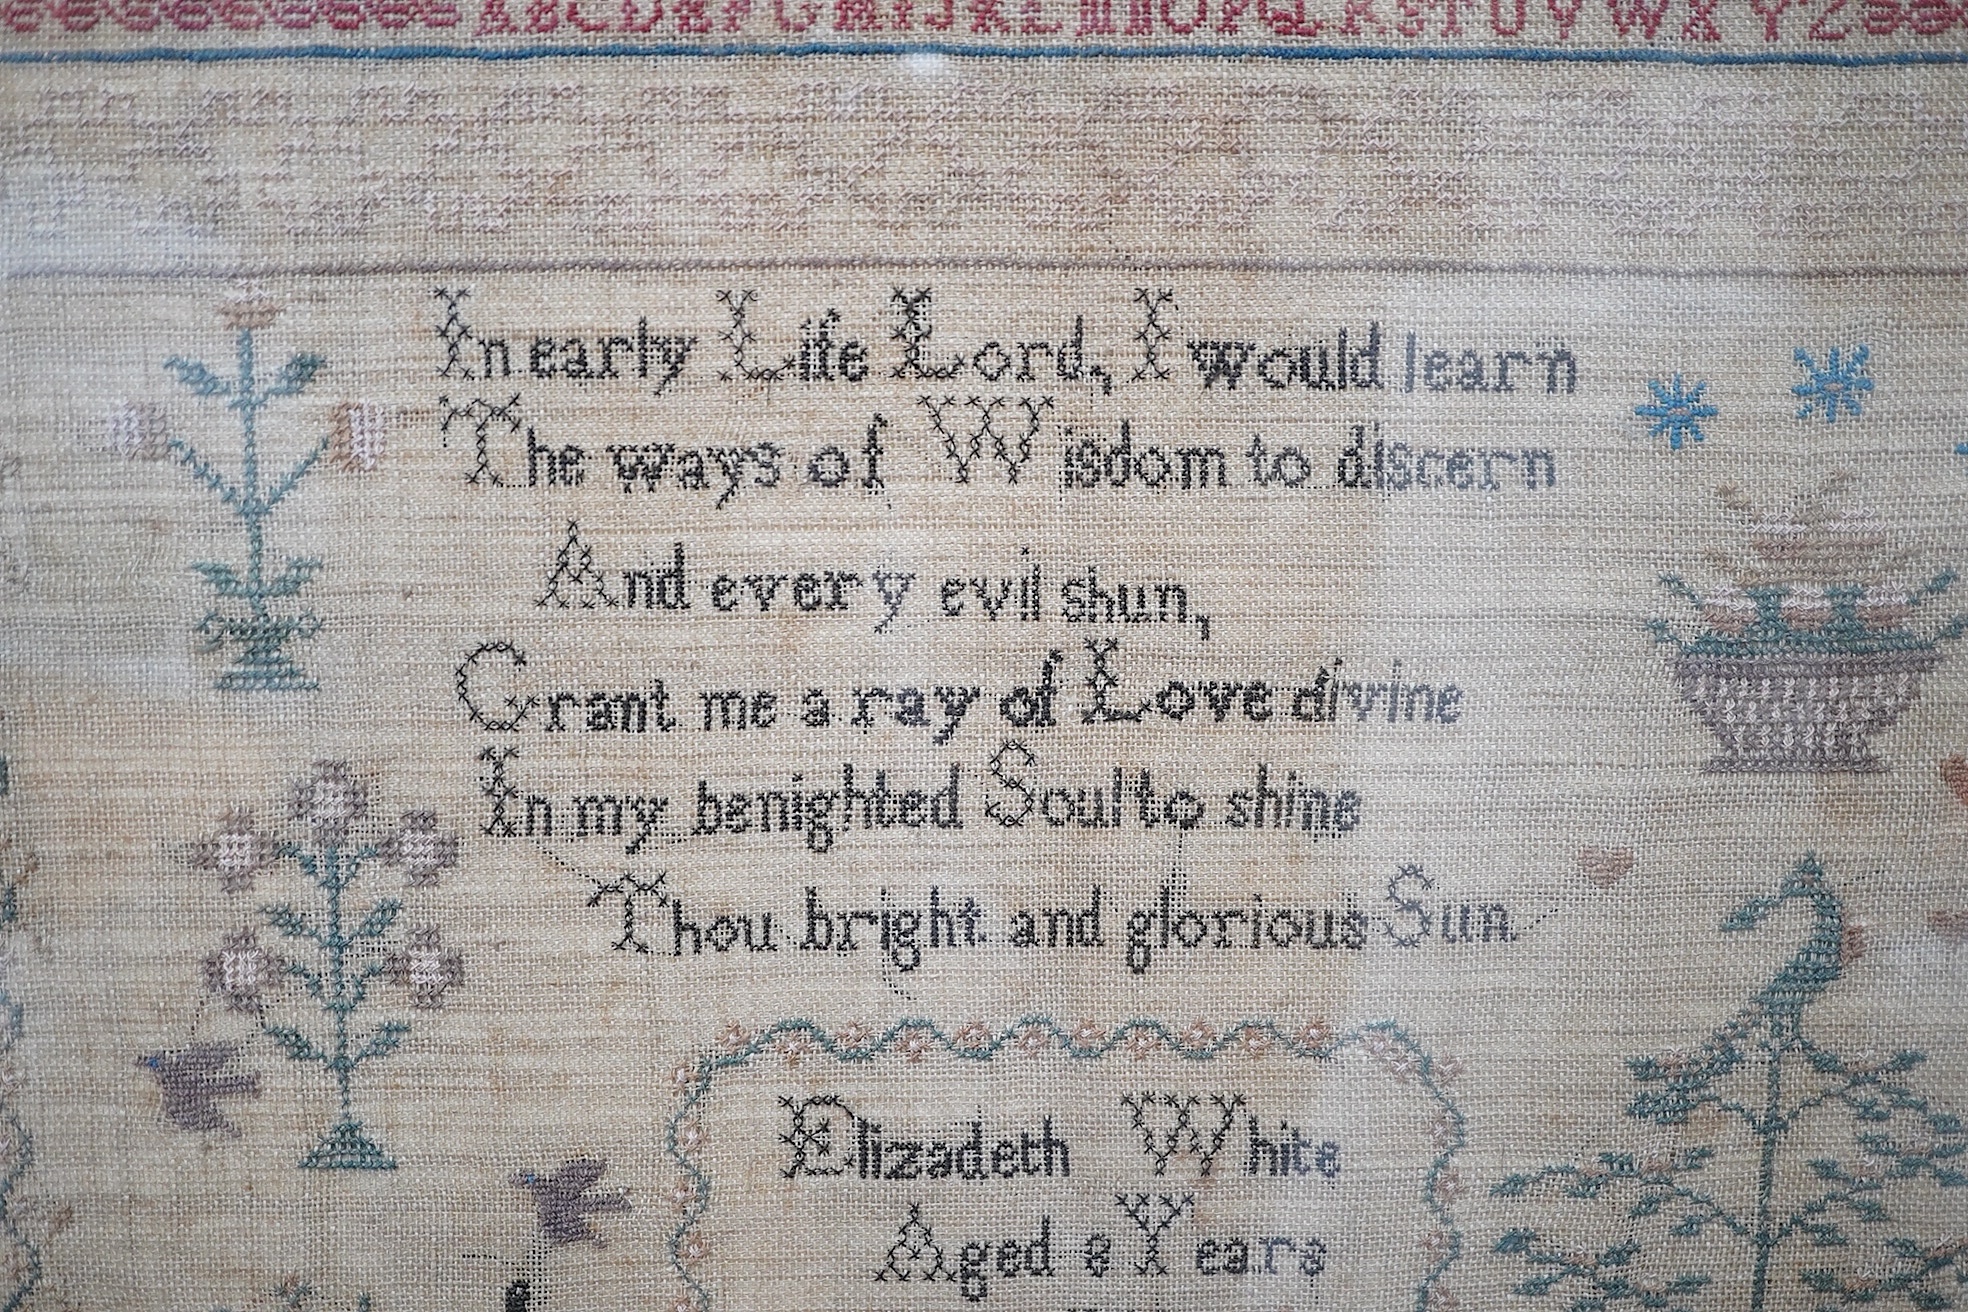 ABCDEFGHIJKLMNOPQRSTUVWXYZ
In early Life Lord, I would learn
The ways of Wisdom to discern
And every evil shun,
Grant me a ray of Love divine
In my benighted Soul to shine
Thou bright and glorious Sun
Elizadeth White
Aged 8 Years